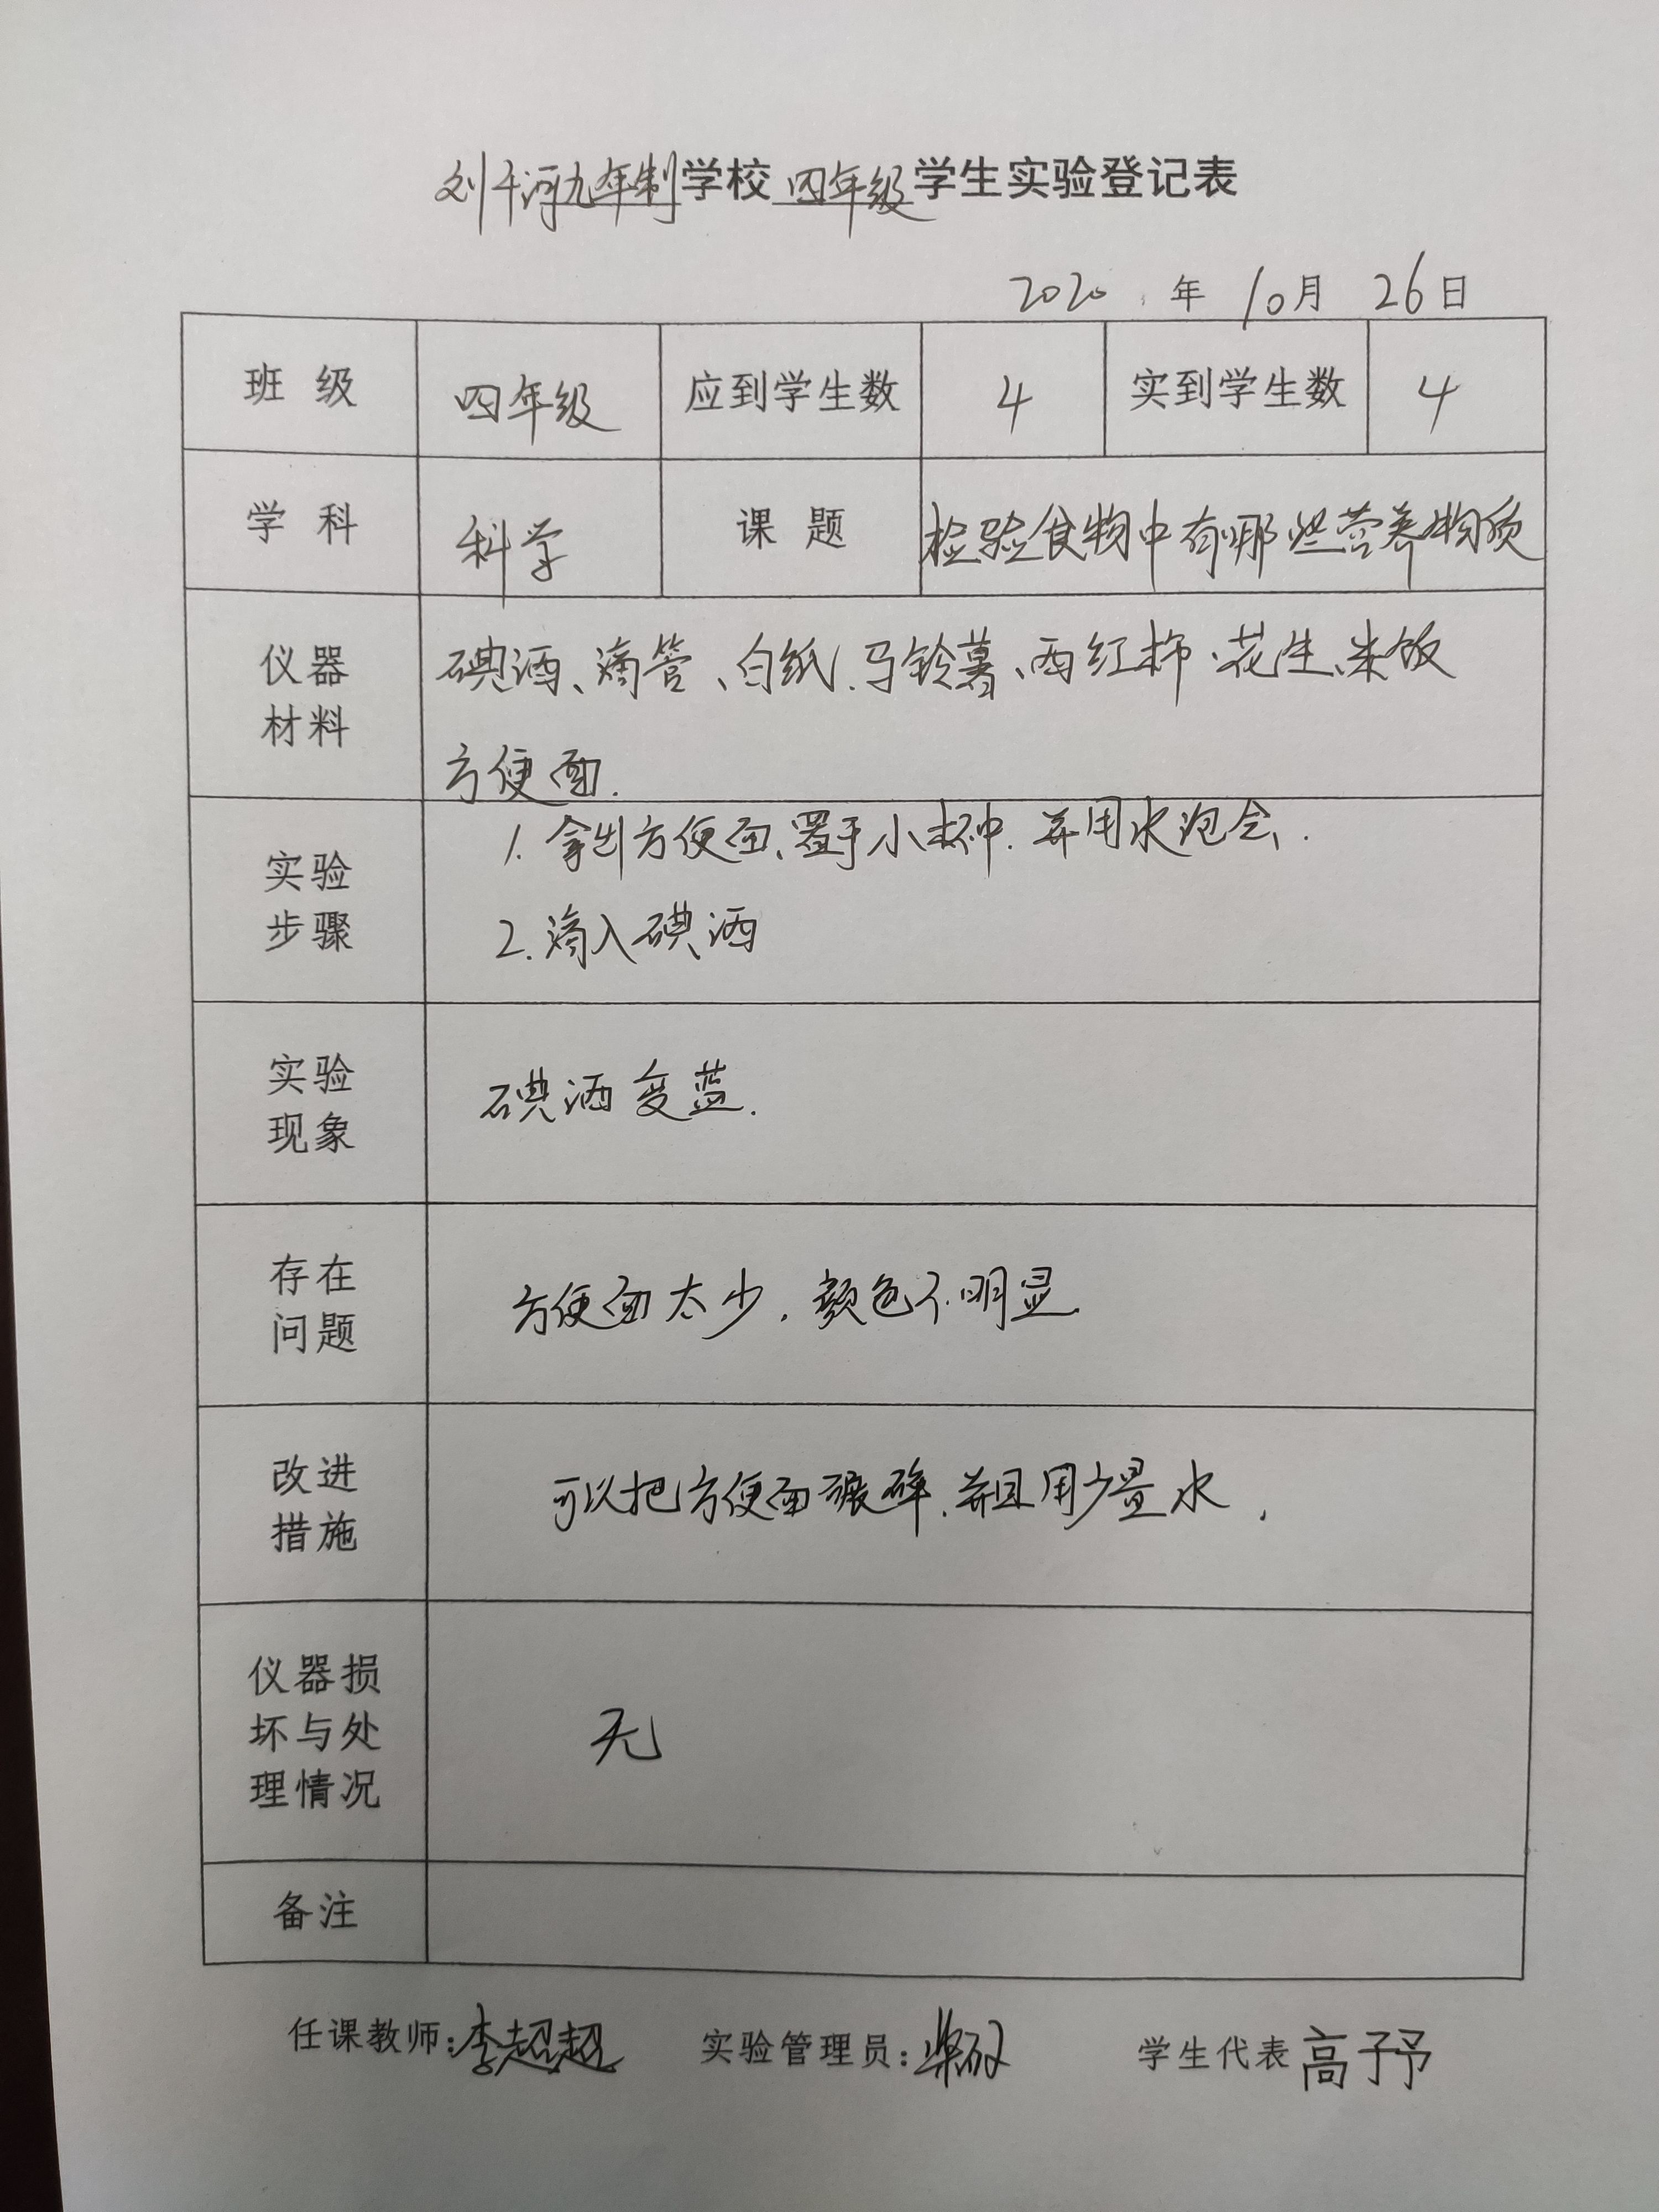 刘千河九年制学校四年级学生实验登记表
2020年10月26日
班级 四年级 应到学生数 4 实到学生数 4
学科 科学 课题 检验食物中有哪些营养物质
仪器
材料
碘酒、滴管、白纸、马铃薯、西红柿、花生、米饭
方便面.
实验
步骤
1. 拿出方便面、置于小杯中. 并用水泡会.
2. 滴入碘酒
实验
现象
碘酒变蓝.
存在
问题
方便面太少, 颜色不明显.
改进
措施
可以把方便面碾碎, 并且用少量水.
仪器损
坏与处
理情况
无
备注
任课教师:李超超 实验管理员: 学生代表 高子予